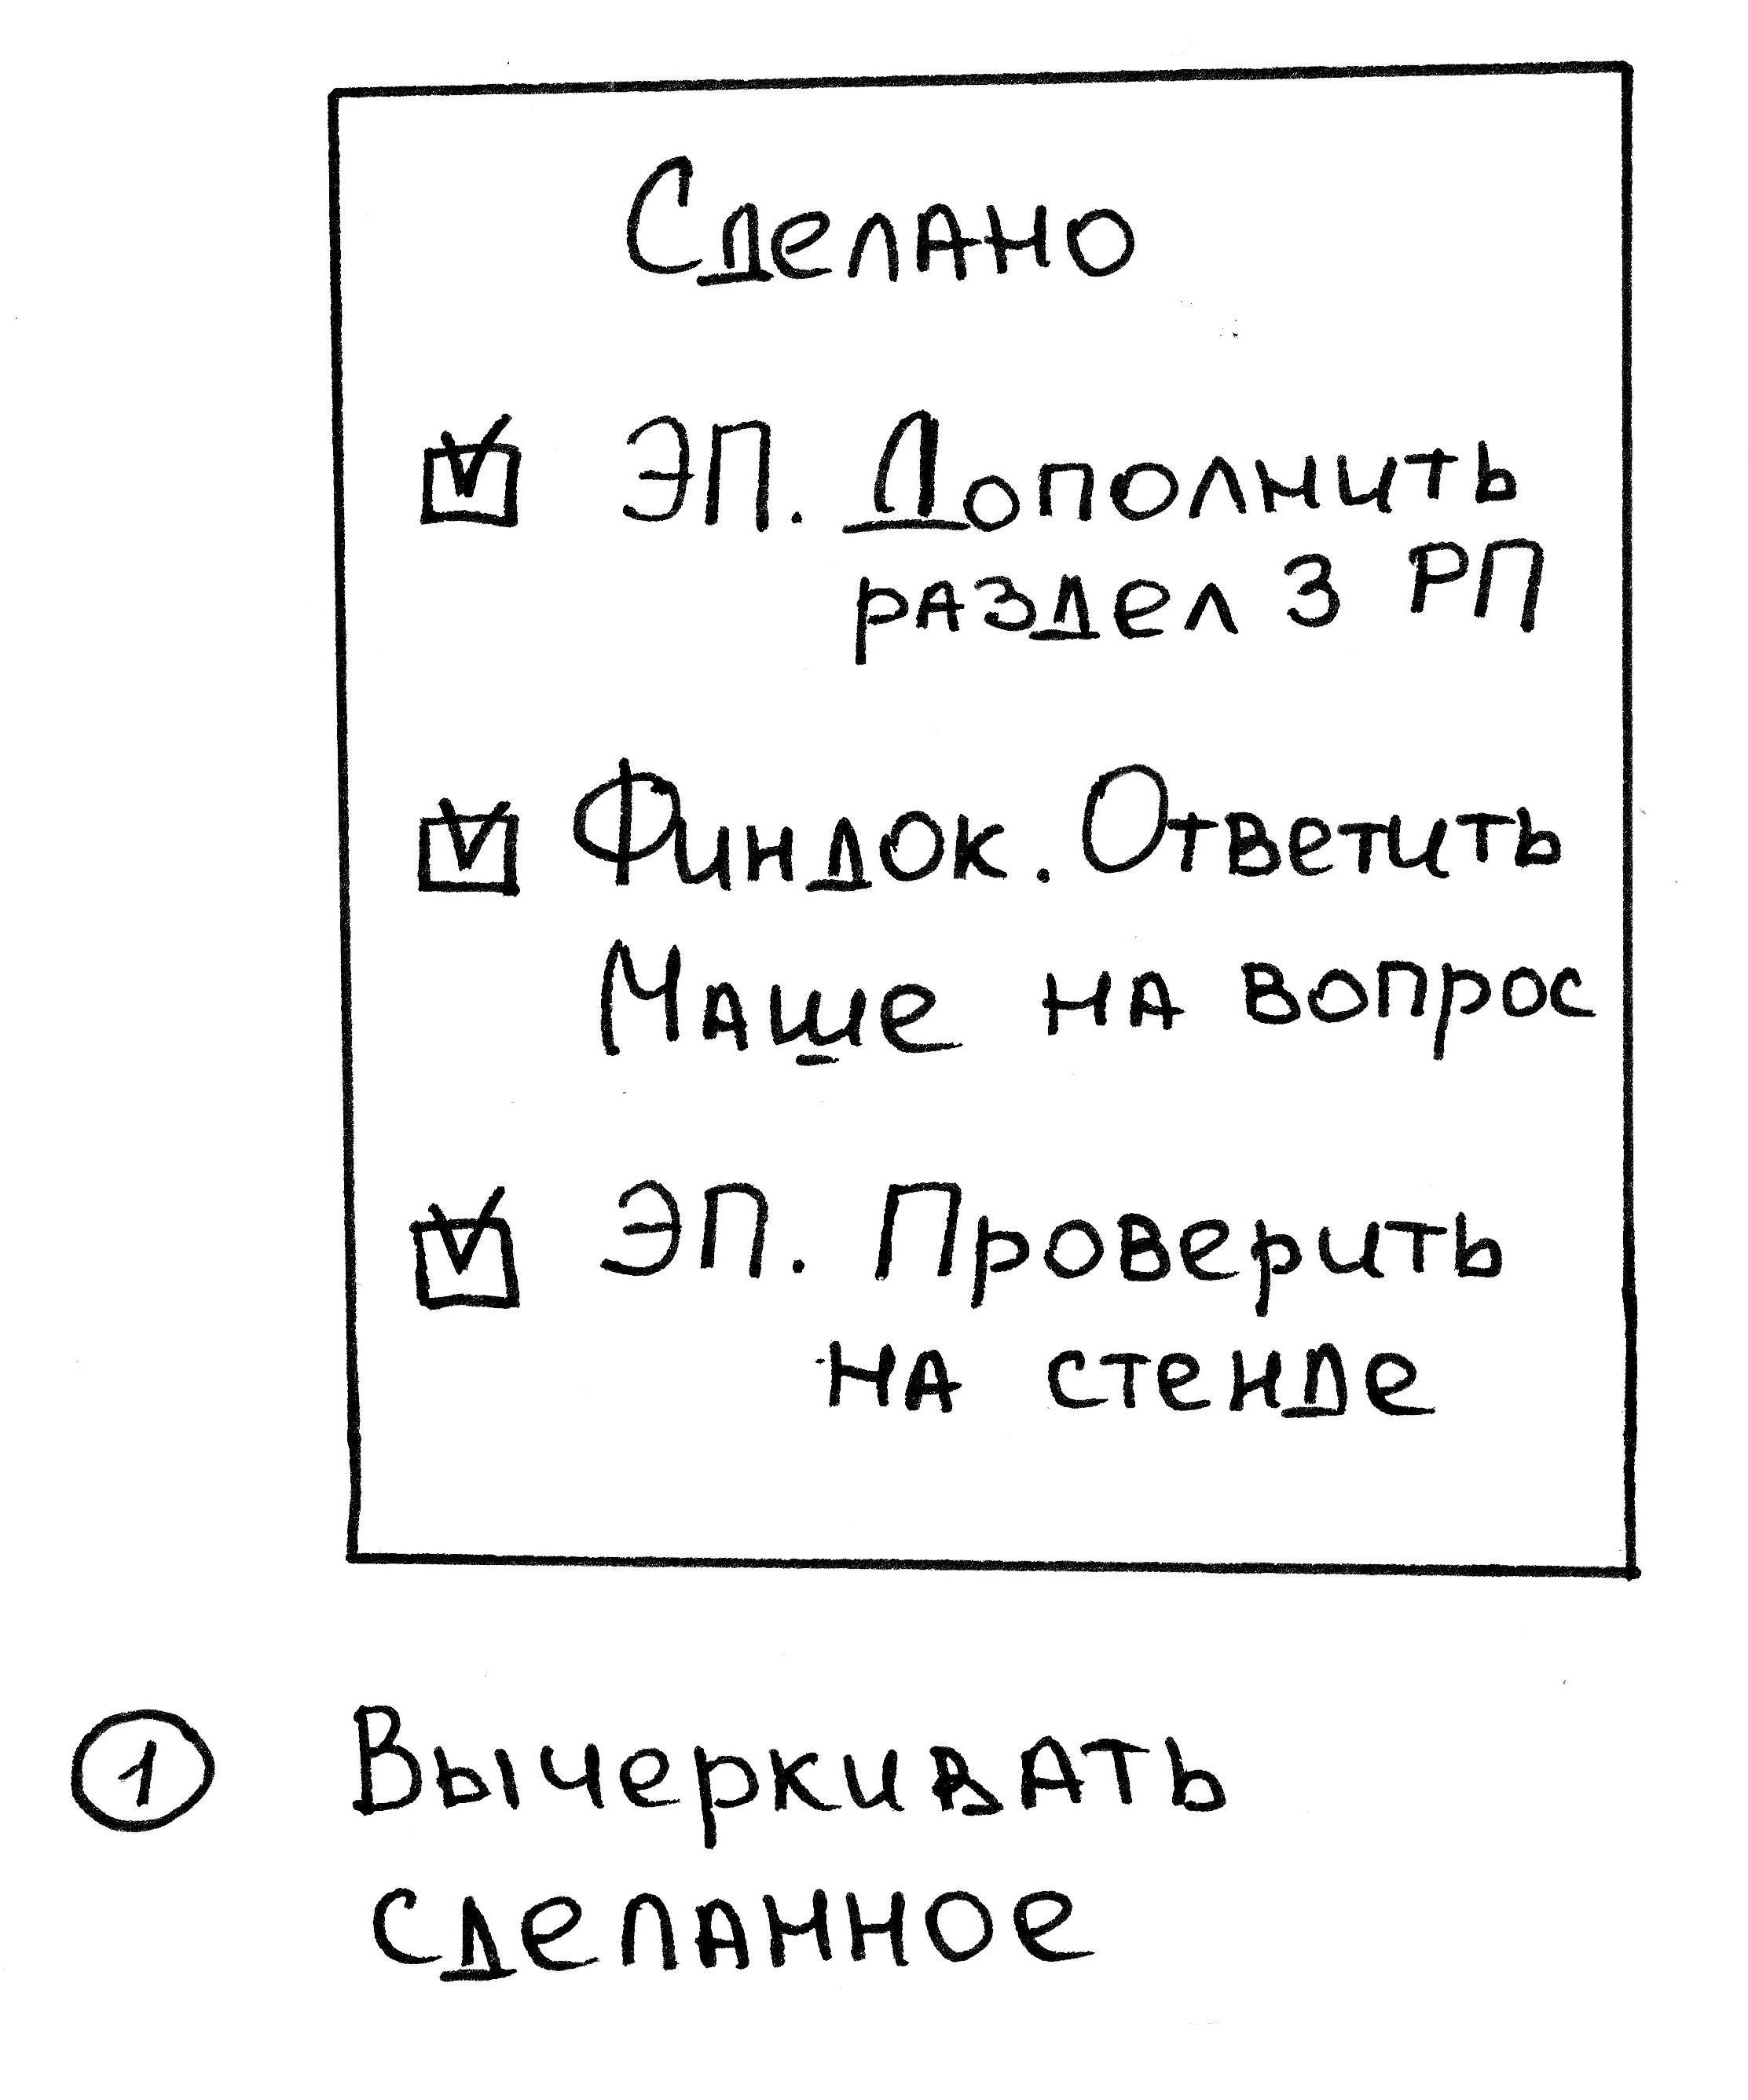 Сделано
ЭП. Дополнить
раздел 3 РП
Финдок. Ответить
Маше на вопрос
ЭП. Проверить
на стенде
1 Вычеркивать
сделанное